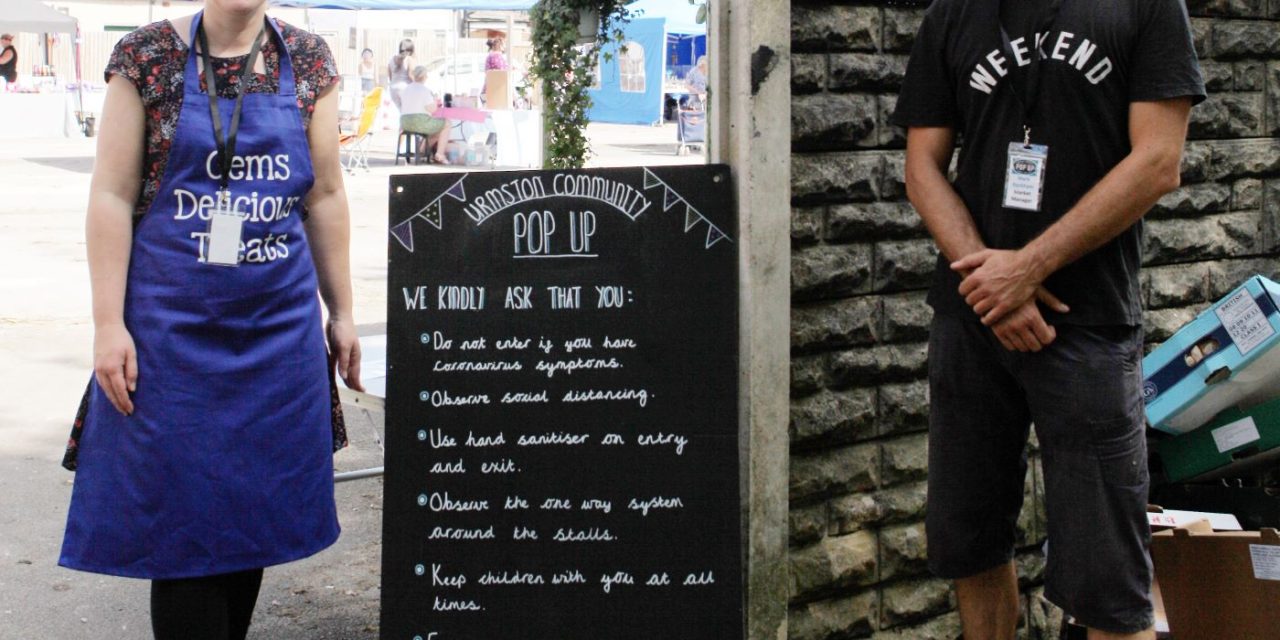 Gems
Delicious
Treats
URMSTON COMMUNITY
POP UP
WE KINDLY ASK THAT YOU:
Do not enter if you have
coronavirus symptoms.
Observe social distancing.
Use hand sanitiser on entry
and exit.
Observe the one way system
around the stalls.
Keep children with you at all
times.
WEEKEND
POP UP
Market
Manager
BRITISH
CLASS 1